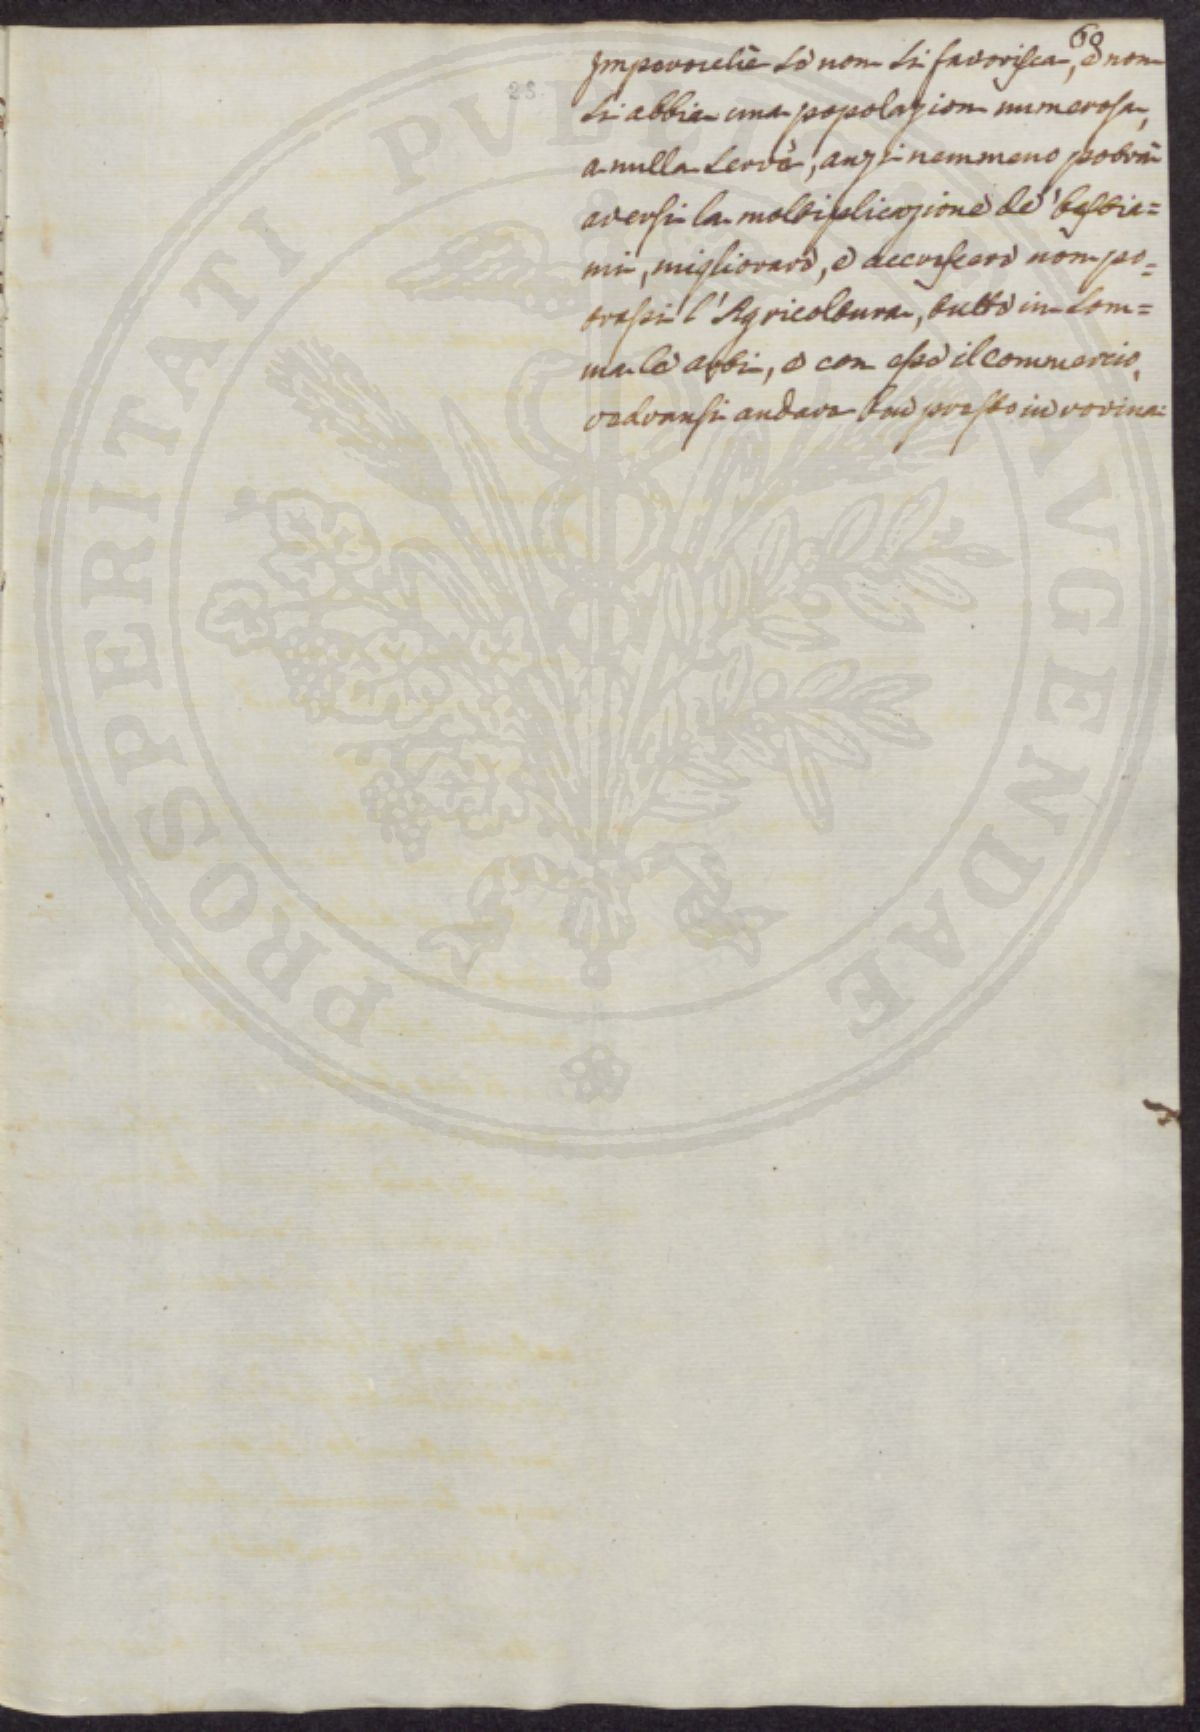 60
Imperocchè se non si favorisca, e non
si abbia una popolazion numerosa,
a nulla serve, anzi nemmeno potrà
aversi la moltiplicazione de' bestia=
mi, migliorare, e accrescere non po=
trassi l'Agricoltura, tutte in som=
ma le arti, e con esse il commercio,
vedransi andare ben presto in rovina:
28.
PROSPERITATI PVBL AVGENDAE